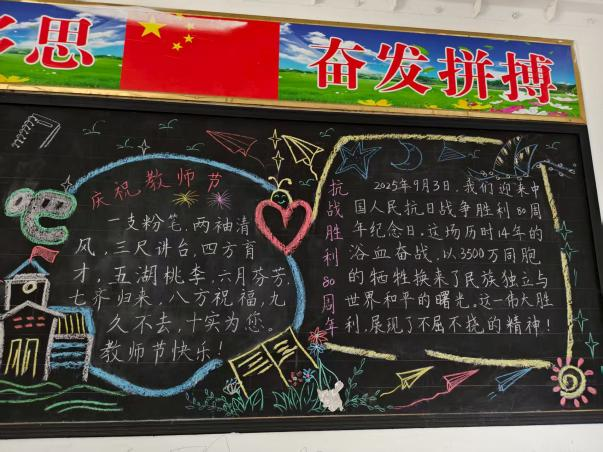 思
奋发拼搏
庆祝教师节
一支粉笔,两袖清
风,三尺讲台,四方育
才,五湖桃李,六月芬芳,
七齐归来,八方祝福,九
久不去,十实为您。
教师节快乐!
抗战胜利80周年
2025年9月3日,我们迎来中
国人民抗日战争胜利80周
年纪念日,这场历时14年的
浴血奋战,以3500万同胞
的牺牲换来了民族独立与
世界和平的曙光。这一伟大胜
利,展现了不屈不挠的精神!